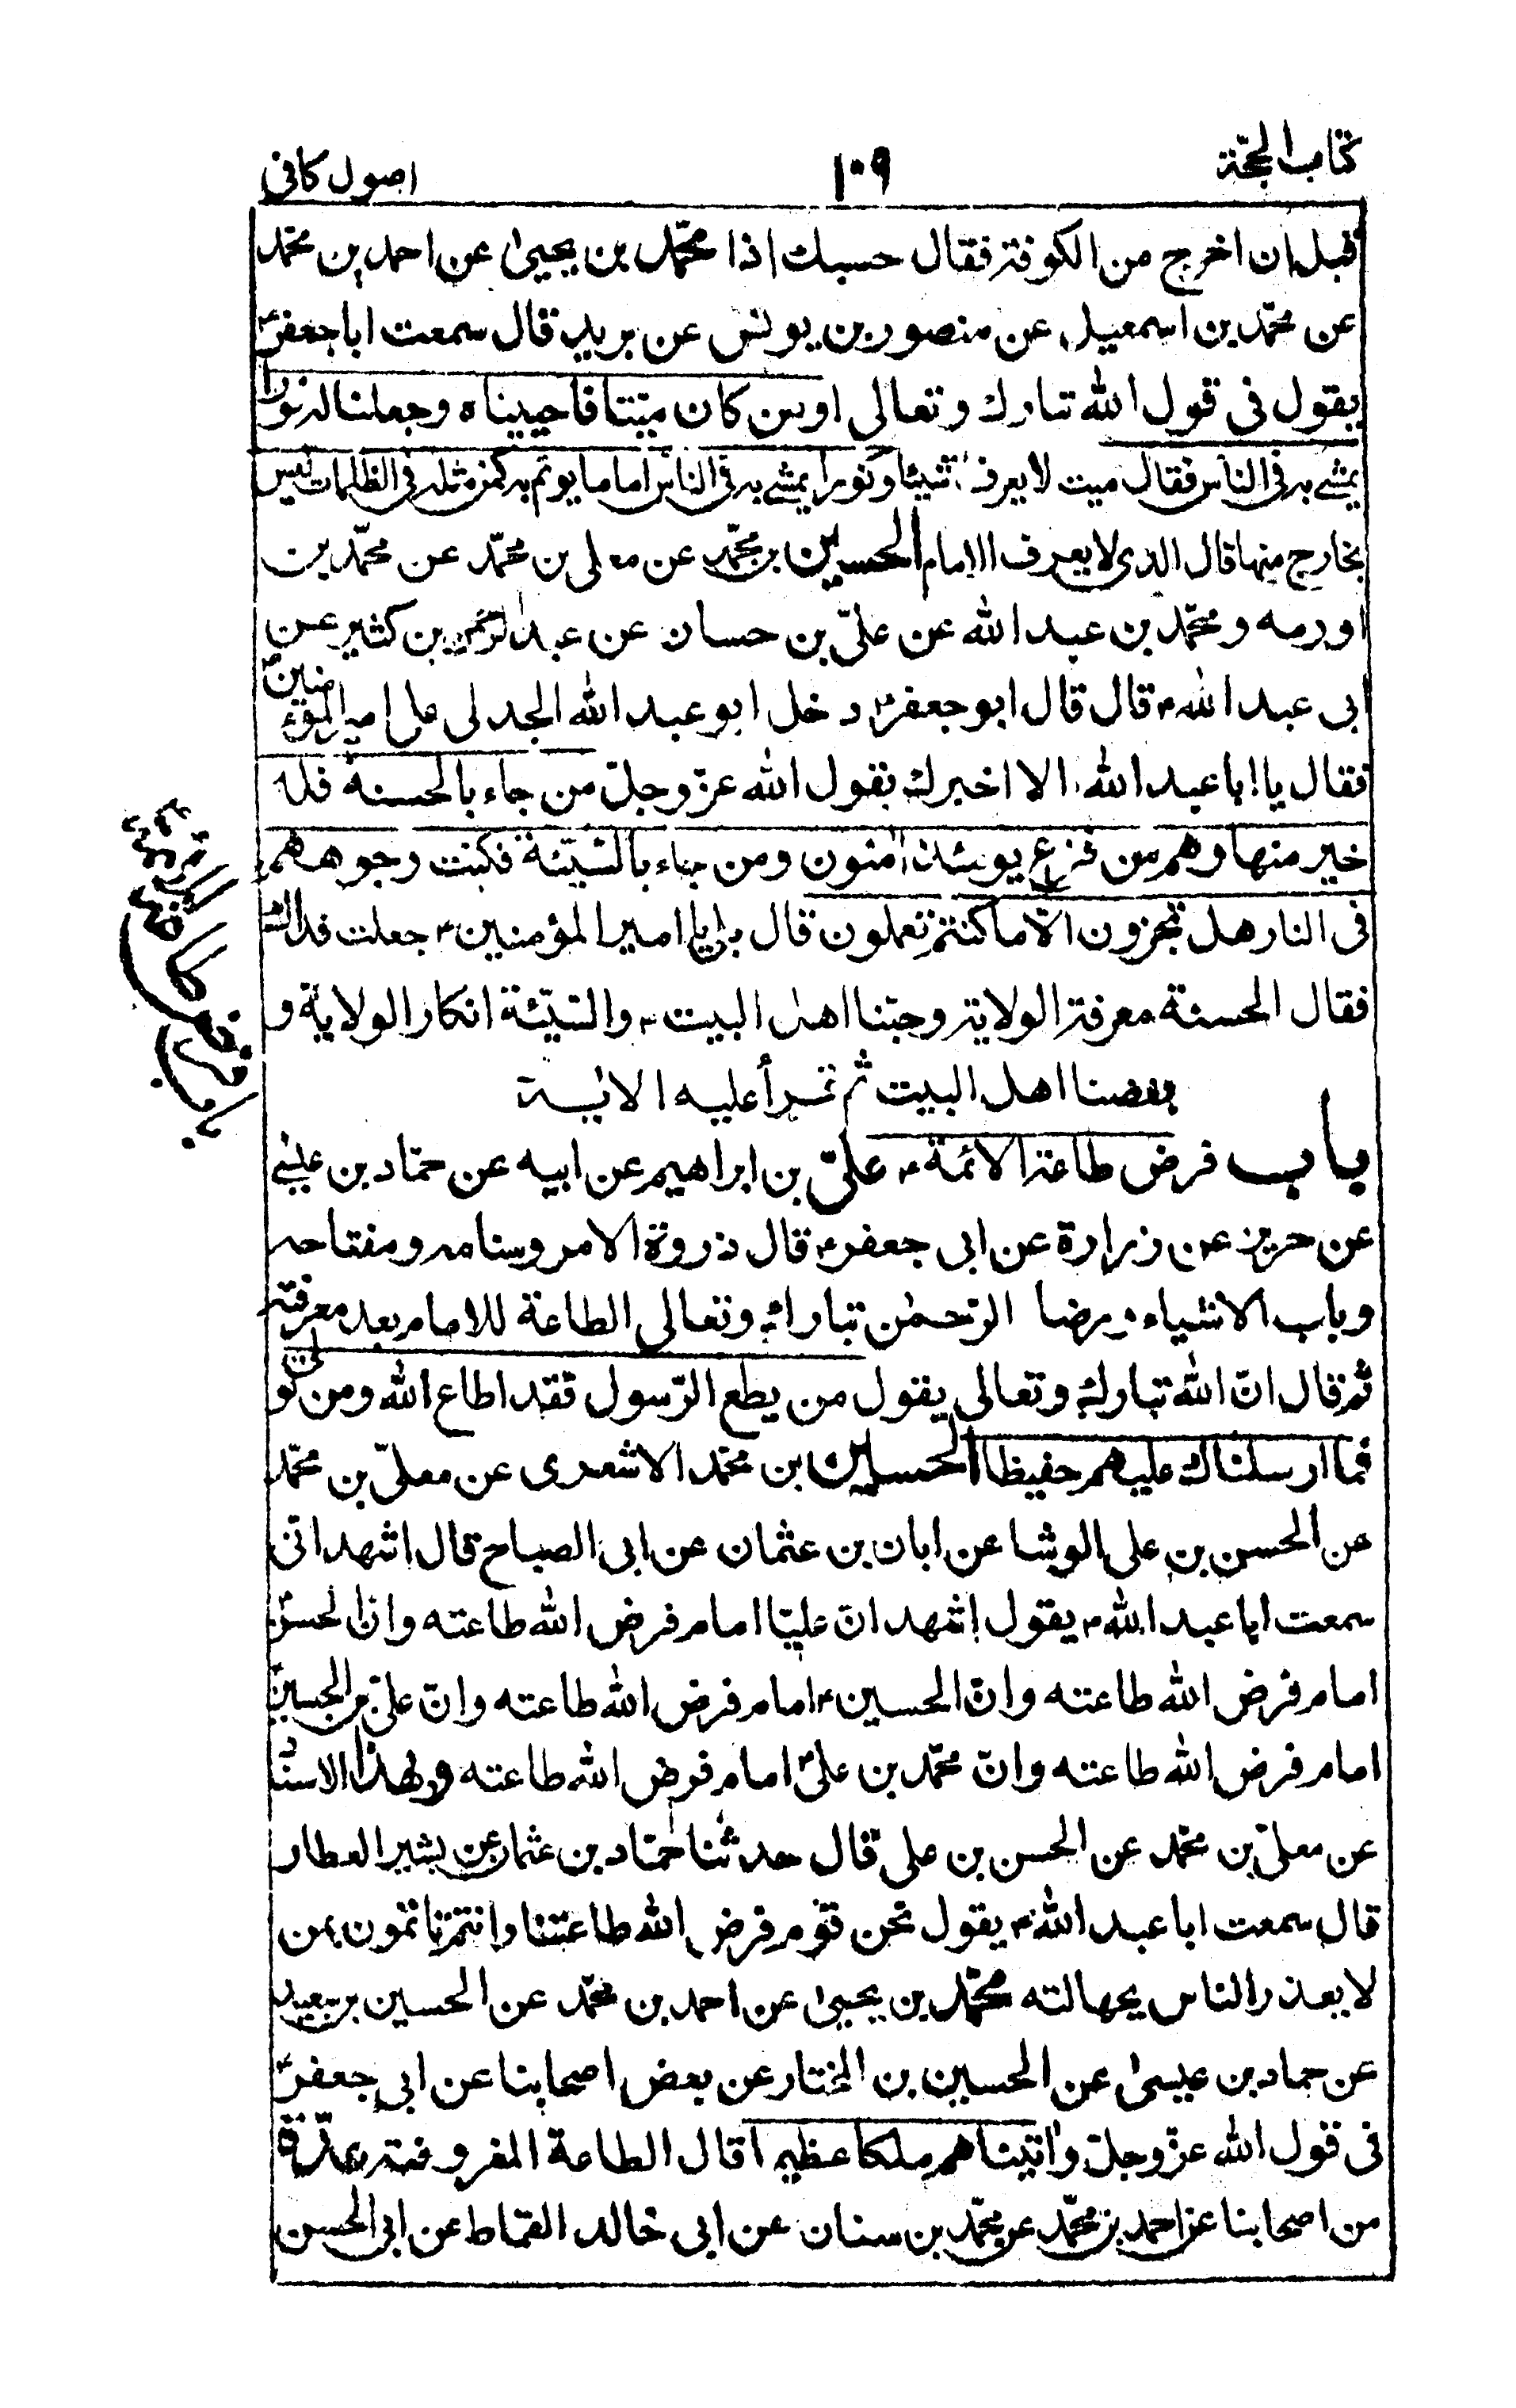 كتاب الحجّة
۱۰۹
اصول كافى
قبل ان اخرج من الكوفة فقال حسبك اذا محمّد بن يحيىٰ عن احمد بن محمّد
عن محمّد بن اسمعيل عن منصور بن يونس عن بريد قال سمعت ابا جعفرؑ
يقول فى قول الله تبارك وتعالى اومن كان ميّتا فاحييناه وجعلنا له نورا
يمشى به فى الناس فقال ميت لا يعرف شيئا ونورا يمشى به فى الناس اماما يؤتم به كمن مثله فى الظلمات ليس
بخارج منها قال الذى لا يعرف الامام الحسين بن محمّد عن معلى بن محمّد عن محمّد بن
اورمه ومحمّد بن عبد الله عن علىّ بن حسان عن عبد الرحمن بن كثير عن
ابى عبد اللهؑ قال قال ابو جعفرؑ دخل ابو عبد الله الجدلى على امير المؤمنينؑ
فقال يا ابا عبد الله الا اخبرك بقول الله عزّ وجلّ من جاء بالحسنة فله
خير منها وهم من فزع يومئذ امنون ومن جاء بالسّيّئة فكبت وجوههم
فى النار هل تجزون الّا ما كنتم تعملون قال بلى يا امير المؤمنينؑ جعلت فداك
فقال الحسنة معرفة الولاية وحبّنا اهل البيتؑ والسّيّئة انكار الولاية و
بغضنا اهل البيت ثم قرأ عليه الاية
باب فرض طاعة الائمةؑ علىّ بن ابراهيم عن ابيه عن حمّاد بن عيسٰى
عن حريز عن زرارة عن ابى جعفرؑ قال ذروة الامر وسنامه ومفتاحه
وباب الاشياء ورضا الرّحمٰن تبارك وتعالى الطاعة للامام بعد معرفته
ثم قال انّ الله تبارك وتعالى يقول من يطع الرّسول فقد اطاع الله ومن تولّى
فما ارسلناك عليهم حفيظا الحسين بن محمّد الاشعرى عن معلّى بن محمّد
عن الحسن بن على الوشا عن ابان بن عثمان عن ابى الصباح قال اشهد انّى
سمعت ابا عبد اللهؑ يقول اشهد انّ عليّا امام فرض الله طاعته وانّ الحسنؑ
امام فرض الله طاعته وانّ الحسينؑ امام فرض الله طاعته وانّ علىّ بن الحسينؑ
امام فرض الله طاعته وانّ محمّد بن علىّؑ امام فرض الله طاعته وبهذا الاسناد
عن معلّى بن محمّد عن الحسن بن على قال حدثنا حمّاد بن عثمان عن بشير العطار
قال سمعت ابا عبد اللهؑ يقول نحن قوم فرض الله طاعتنا وانتم تأتمّون بمن
لا يعذر الناس بجهالته محمّد بن يحيىٰ عن احمد بن محمّد عن الحسين بن سعيد
عن حماد بن عيسىٰ عن الحسين بن المختار عن بعض اصحابنا عن ابى جعفرؑ
فى قول الله عزّ وجلّ واتيناهم ملكا عظيما قال الطاعة المفروضة عدّة
من اصحابنا عن احمد بن محمّد عن محمّد بن سنان عن ابى خالد القمّاط عن ابى الحسن